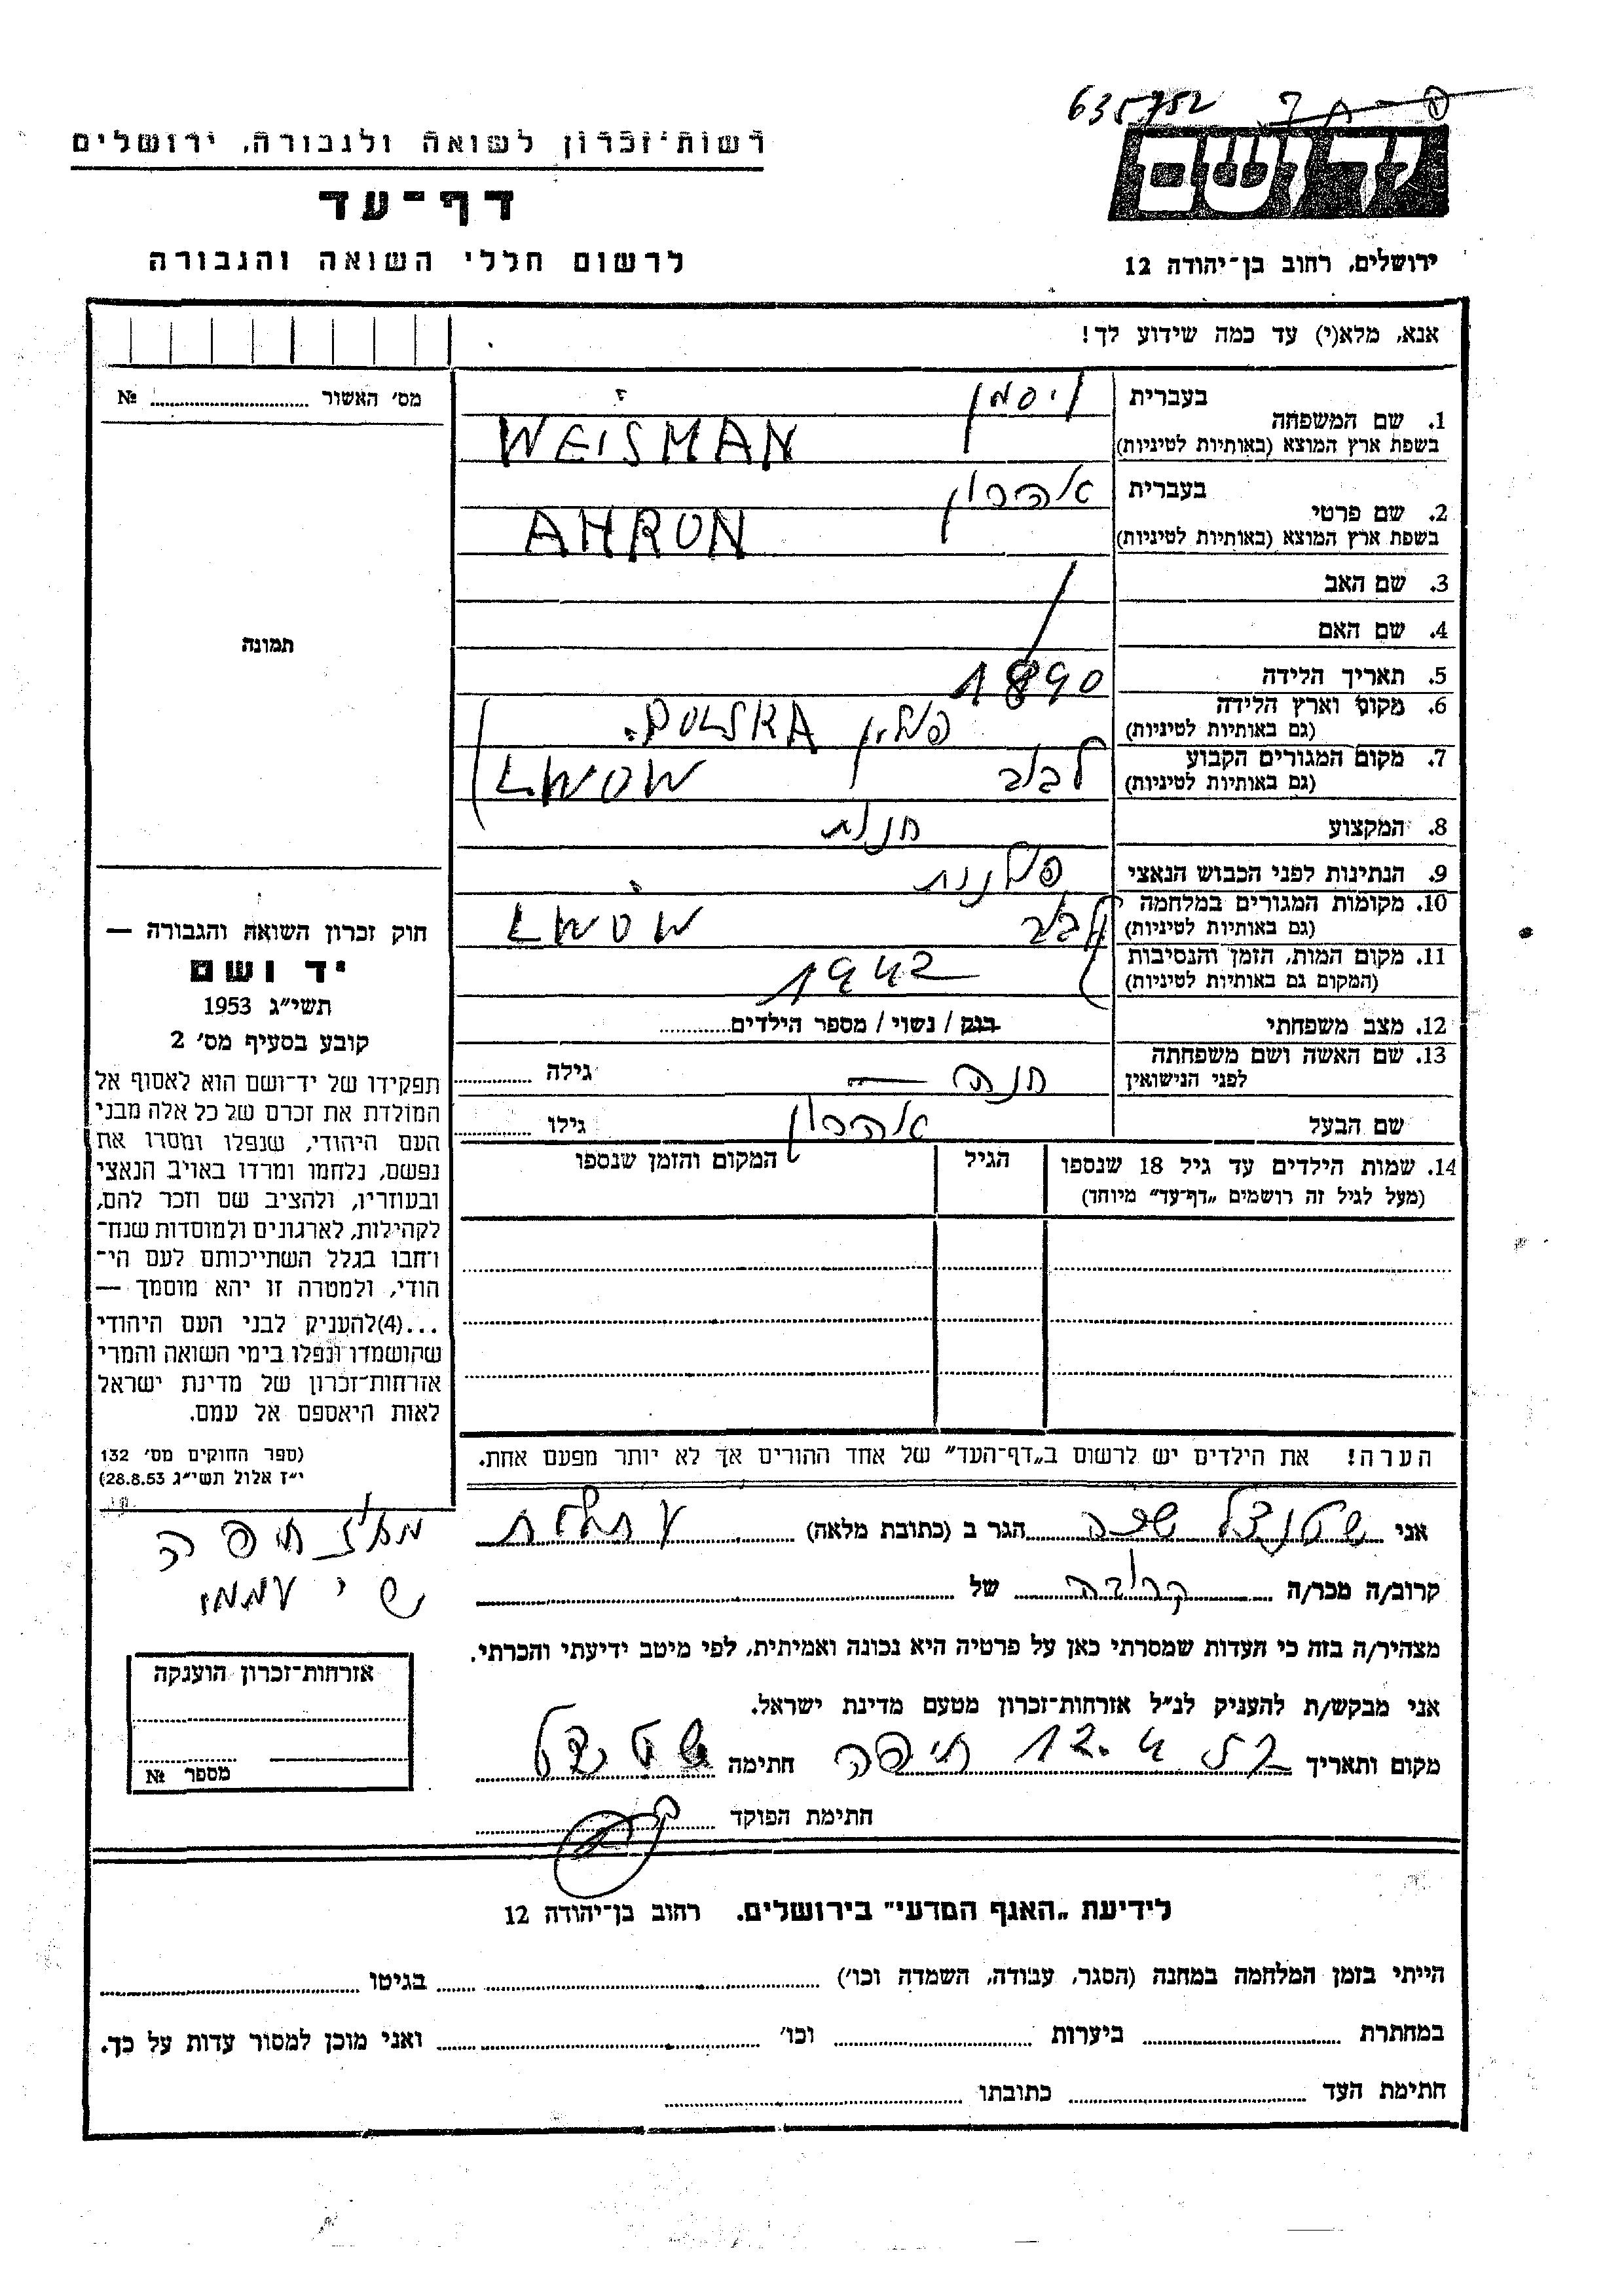 635752
רשות־זכרון לשואה ולגבורה, ירושלים
יד ושם
דף־עד
לרשום חללי השואה והגבורה
ירושלים, רחוב בן־יהודה 12
אנא, מלא(י) עד כמה שידוע לך!
מס׳ האשור № 
1. שם המשפחה
בעברית ויסמן
בשפת ארץ המוצא (באותיות לטיניות) WEISMAN
2. שם פרטי
בעברית אהרון
בשפת ארץ המוצא (באותיות לטיניות) AHRON
3. שם האב
4. שם האם
5. תאריך הלידה 1890
6. מקום וארץ הלידה פולין POLSKA.
(גם באותיות לטיניות)
7. מקום המגורים הקבוע לבוב LWOW
(גם באותיות לטיניות)
8. המקצוע
9. הנתינות לפני הכבוש הנאצי
10. מקומות המגורים במלחמה לבוב LWOW
(גם באותיות לטיניות)
11. מקום המות, הזמן והנסיבות 1942
(המקום גם באותיות לטיניות)
12. מצב משפחתי רווק / נשוי / מספר הילדים
13. שם האשה ושם משפחתה חנה — גילה
לפני הנישואין
שם הבעל אהרון גילו
14. שמות הילדים עד גיל 18 שנספו
(מעל לגיל זה רושמים „דף־עד” מיוחד)
הגיל
המקום והזמן שנספו
תמונה
חוק זכרון השואה והגבורה —
יד ושם
תשי״ג 1953
קובע בסעיף מס׳ 2
תפקידו של יד־ושם הוא לאסוף אל
המולדת את זכרם של כל אלה מבני
העם היהודי, שנפלו ומסרו את
נפשם, נלחמו ומרדו באויב הנאצי
ובעוזריו, ולהציב שם וזכר להם,
לקהילות, לארגונים ולמוסדות שנח־
רחבו בגלל השתייכותם לעם הי־
הודי, ולמטרה זו יהא מוסמך —
...(4)להעניק לבני העם היהודי
שהושמדו ונפלו בימי השואה והמרי
אזרחות־זכרון של מדינת ישראל
לאות היאספם אל עמם.
(ספר החוקים מס׳ 132
י״ז אלול תשי״ג 28.8.53)
הערה! את הילדים יש לרשום ב„דף־העד” של אחד ההורים אך לא יותר מפעם אחת.
אני שטנצל שרה הגר ב (כתובת מלאה) עתלית
חיפה
קרוב/ה מכר/ה קרובה של
מצהיר/ה בזה כי העדות שמסרתי כאן על פרטיה היא נכונה ואמיתית, לפי מיטב ידיעתי והכרתי.
אני מבקש/ת להעניק לנ״ל אזרחות־זכרון מטעם מדינת ישראל.
מקום ותאריך 12.4.57 חיפה חתימה
חתימת הפוקד
אזרחות־זכרון הוענקה
מספר №
לידיעת „האגף המדעי” בירושלים. רחוב בן־יהודה 12
הייתי בזמן המלחמה במחנה (הסגר, עבודה, השמדה וכו׳) בגיטו
במחתרת ביערות וכו׳ ואני מוכן למסור עדות על כך.
חתימת העד כתובתו